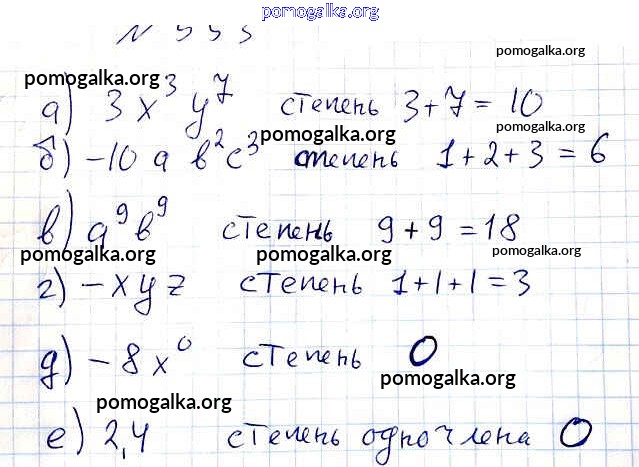 pomogalka.org
N 333 pomogalka.org
pomogalka.org
а) 3x³y⁷ степень 3+7=10
pomogalka.org pomogalka.org
б) -10ab²c³ степень 1+2+3=6
в) a⁹b⁹ степень 9+9=18
pomogalka.org pomogalka.org pomogalka.org
г) -xyz степень 1+1+1=3
д) -8x⁰ степень 0
pomogalka.org
pomogalka.org
е) 2,4 степень одночлена 0